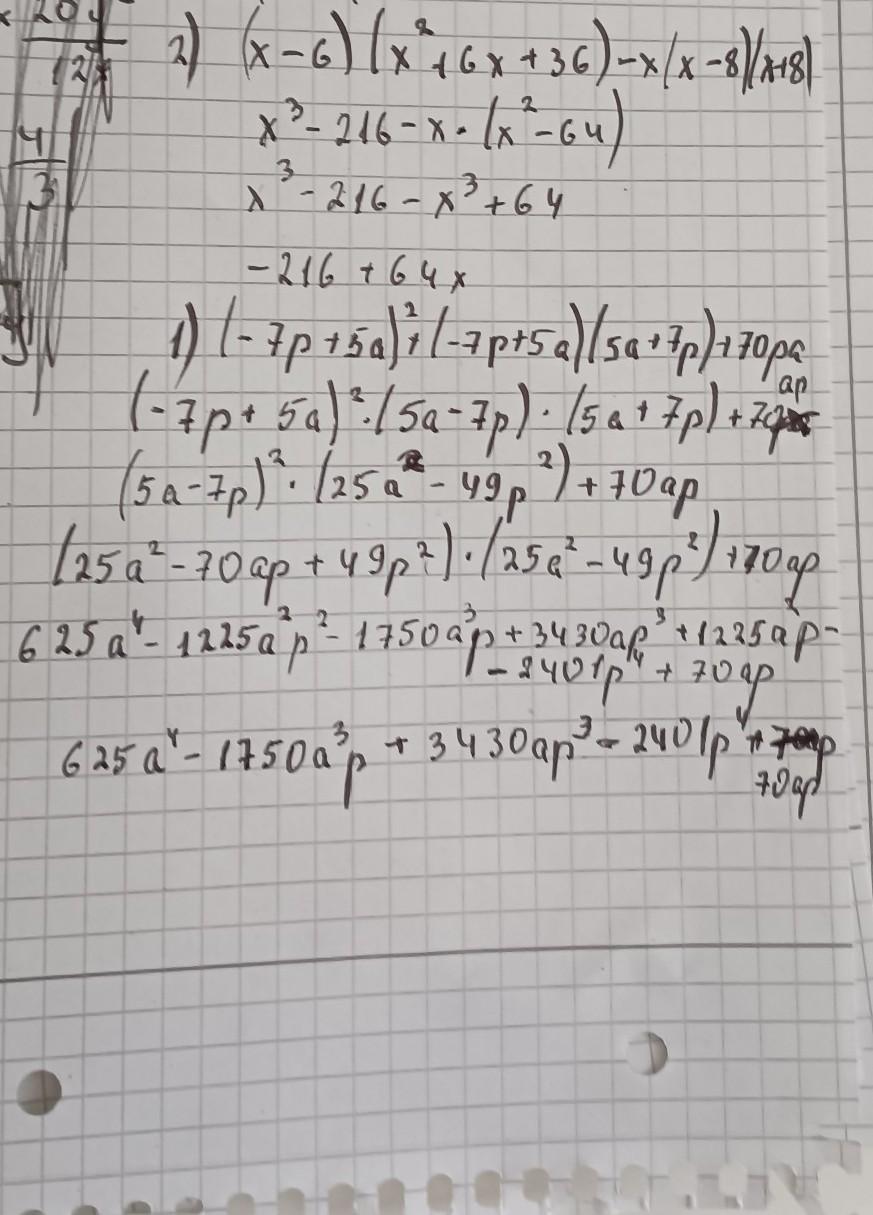 20y
12x
4
3
2) (x-6)(x²+6x+36)-x(x-8)(x+8)
x³-216-x·(x²-64)
x³-216-x³+64
-216+64x
1) (-7p+5a)²+(-7p+5a)(5a+7p)+70pa
(-7p+5a)²·(5a-7p)·(5a+7p)+70ap
(5a-7p)²·(25a²-49p²)+70ap
(25a²-70ap+49p²)·(25a²-49p²)+70ap
625a⁴-1225a²p²-1750a³p+3430ap³+1225a²p-
-2401p⁴+70ap
625a⁴-1750a³p+3430ap³-2401p⁴+
70ap